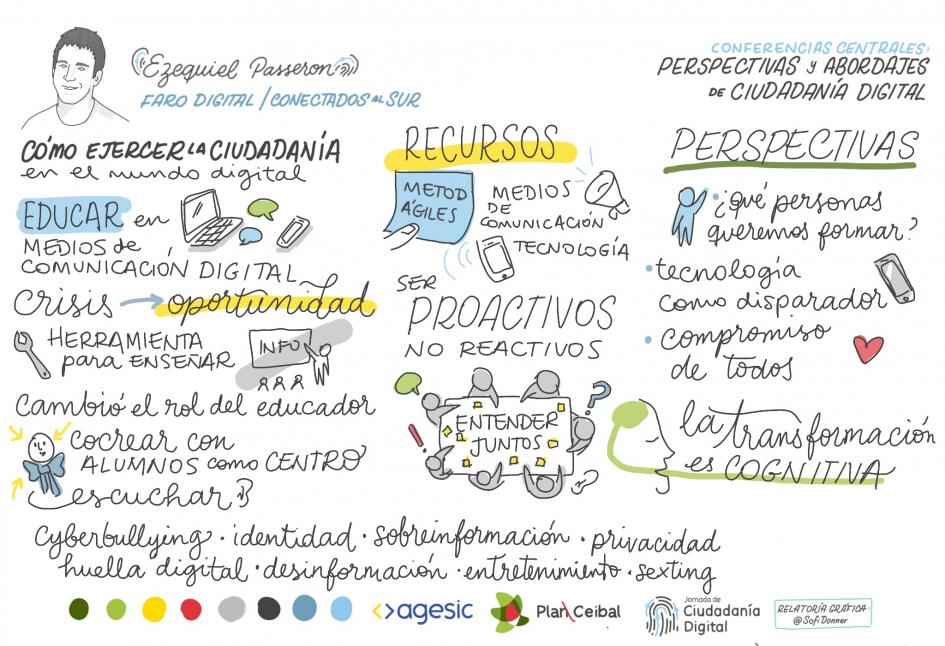 Ezequiel Passeron
FARO DIGITAL / CONECTADOS AL SUR
CONFERENCIAS CENTRALES:
PERSPECTIVAS y ABORDAJES
DE CIUDADANÍA DIGITAL
CÓMO EJERCER LA CIUDADANÍA
en el mundo digital
EDUCAR en
MEDIOS de
COMUNICACIÓN DIGITAL
crisis → oportunidad
HERRAMIENTA
para ENSEÑAR
INFO
Cambió el rol del educador
cocrear con
ALUMNOS como CENTRO
escuchar
RECURSOS
METOD
ÁGILES
MEDIOS
DE
COMUNICACIÓN
TECNOLOGÍA
SER
PROACTIVOS
NO REACTIVOS
ENTENDER
JUNTOS
! ? ?
PERSPECTIVAS
• ¿qué personas
queremos formar?
• tecnología
como disparador
• compromiso
de todos
la transformación
es COGNITIVA
cyberbullying · identidad · sobreinformación · privacidad
huella digital · desinformación · entretenimiento · sexting
<>agesic
Plan Ceibal
Jornada de
Ciudadanía
Digital
RELATORÍA GRÁFICA:
@SofiDonner